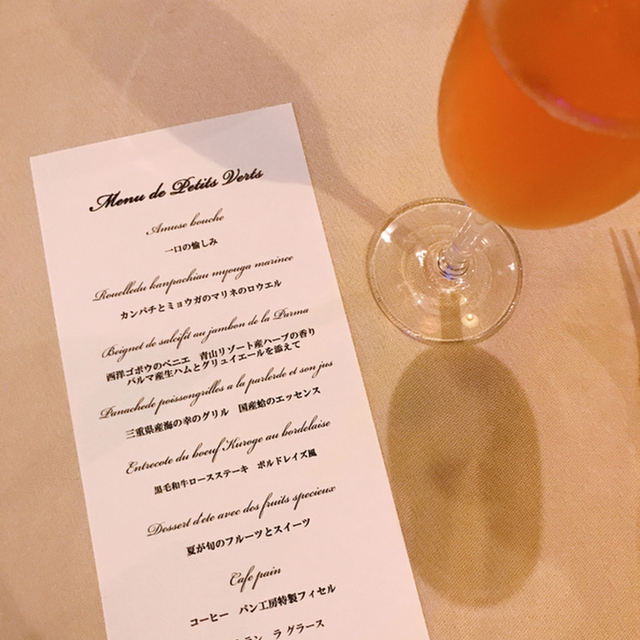 Menu de Petits Verts
Amuse bouche
一口の愉しみ
Rouelledu kanpachiau myouga marince
カンパチとミョウガのマリネのロウエル
Beignet de salcifit au jambon de la Parma
西洋ゴボウのベニエ 青山リゾート産ハーブの香り
パルマ産生ハムとグリュイエールを添えて
Panachede poissongrilles a la parlerde et son jus
三重県産海の幸のグリル 国産蛤のエッセンス
Entrecote du boeuf Kuroge au bordelaise
黒毛和牛ロースステーキ ボルドレイズ風
Dessert d'ete avec des fruits specieux
夏が旬のフルーツとスイーツ
Cafe pain
コーヒー パン工房特製フィセル
ラ グラース